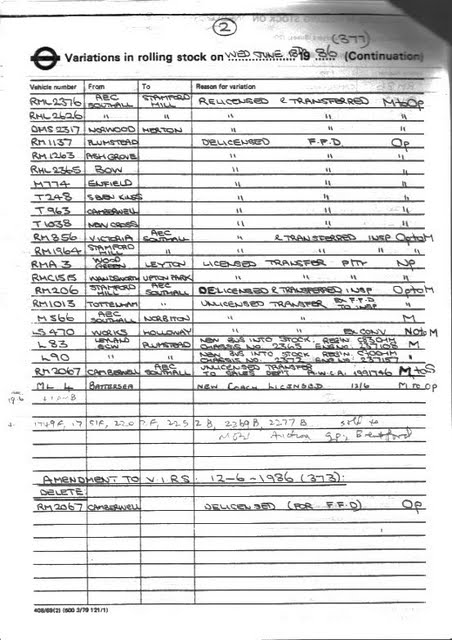 2
(377)
Variations in rolling stock on WED JUNE 19 86 (Continuation)
Vehicle number From To Reason for variation
RML2376 AEC SOUTHALL STAMFORD HILL RELICENSED & TRANSFERRED M to Op
RML2626 " " " " "
DMS2317 NORWOOD MERTON " " "
RM1137 PLUMSTEAD DELICENSED F.F.D. Op
RM1263 ASH GROVE " " "
RML2365 BOW " " "
M774 ENFIELD " " "
T248 SEVEN KINGS " " "
T963 CAMBERWELL " " "
T1038 NEW CROSS " " "
RM856 VICTORIA AEC SOUTHALL " & TRANSFERRED INSP Op to M
RM1964 STAMFORD HILL " " " " "
RMA3 WOOD GREEN LEYTON LICENSED TRANSFER PTY NP
RMC1515 WANDSWORTH UPTON PARK " " " "
RM206 STAMFORD HILL AEC SOUTHALL DELICENSED & TRANSFERRED INSP Op to M
RM1013 TOTTENHAM " UNLICENSED TRANSFER EX F.F.D TO INSP "
M366 AEC SOUTHALL NORBITON " " M
LS470 WORKS HOLLOWAY " EX CONV N to M
L83 LEYLAND BCW PLUMSTEAD NEW BUS INTO STOCK. REG'N C83CHM CHASSIS NO. 2365 ENG NO. 237108 M
L90 " " NEW BUS INTO STOCK REG'N C90CHM CHASSIS NO. 2372 ENG NO. 237157 "
RM2067 CAMBERWELL AEC SOUTHALL UNLICENSED TRANSFER TO SALES DEPT A.W.C.A. M to S
ML 4 BATTERSEA NEW COACH LICENSED 12/6 M to Op
19.6
2269B, 2277B sold to
Auction Brentford
AMENDMENT TO V.I.R.S. 12-6-1986 (373):
DELETE
RM2067 CAMBERWELL DELICENSED (FOR F.F.D) Op
408/69(2) (600 3/79 121/1)